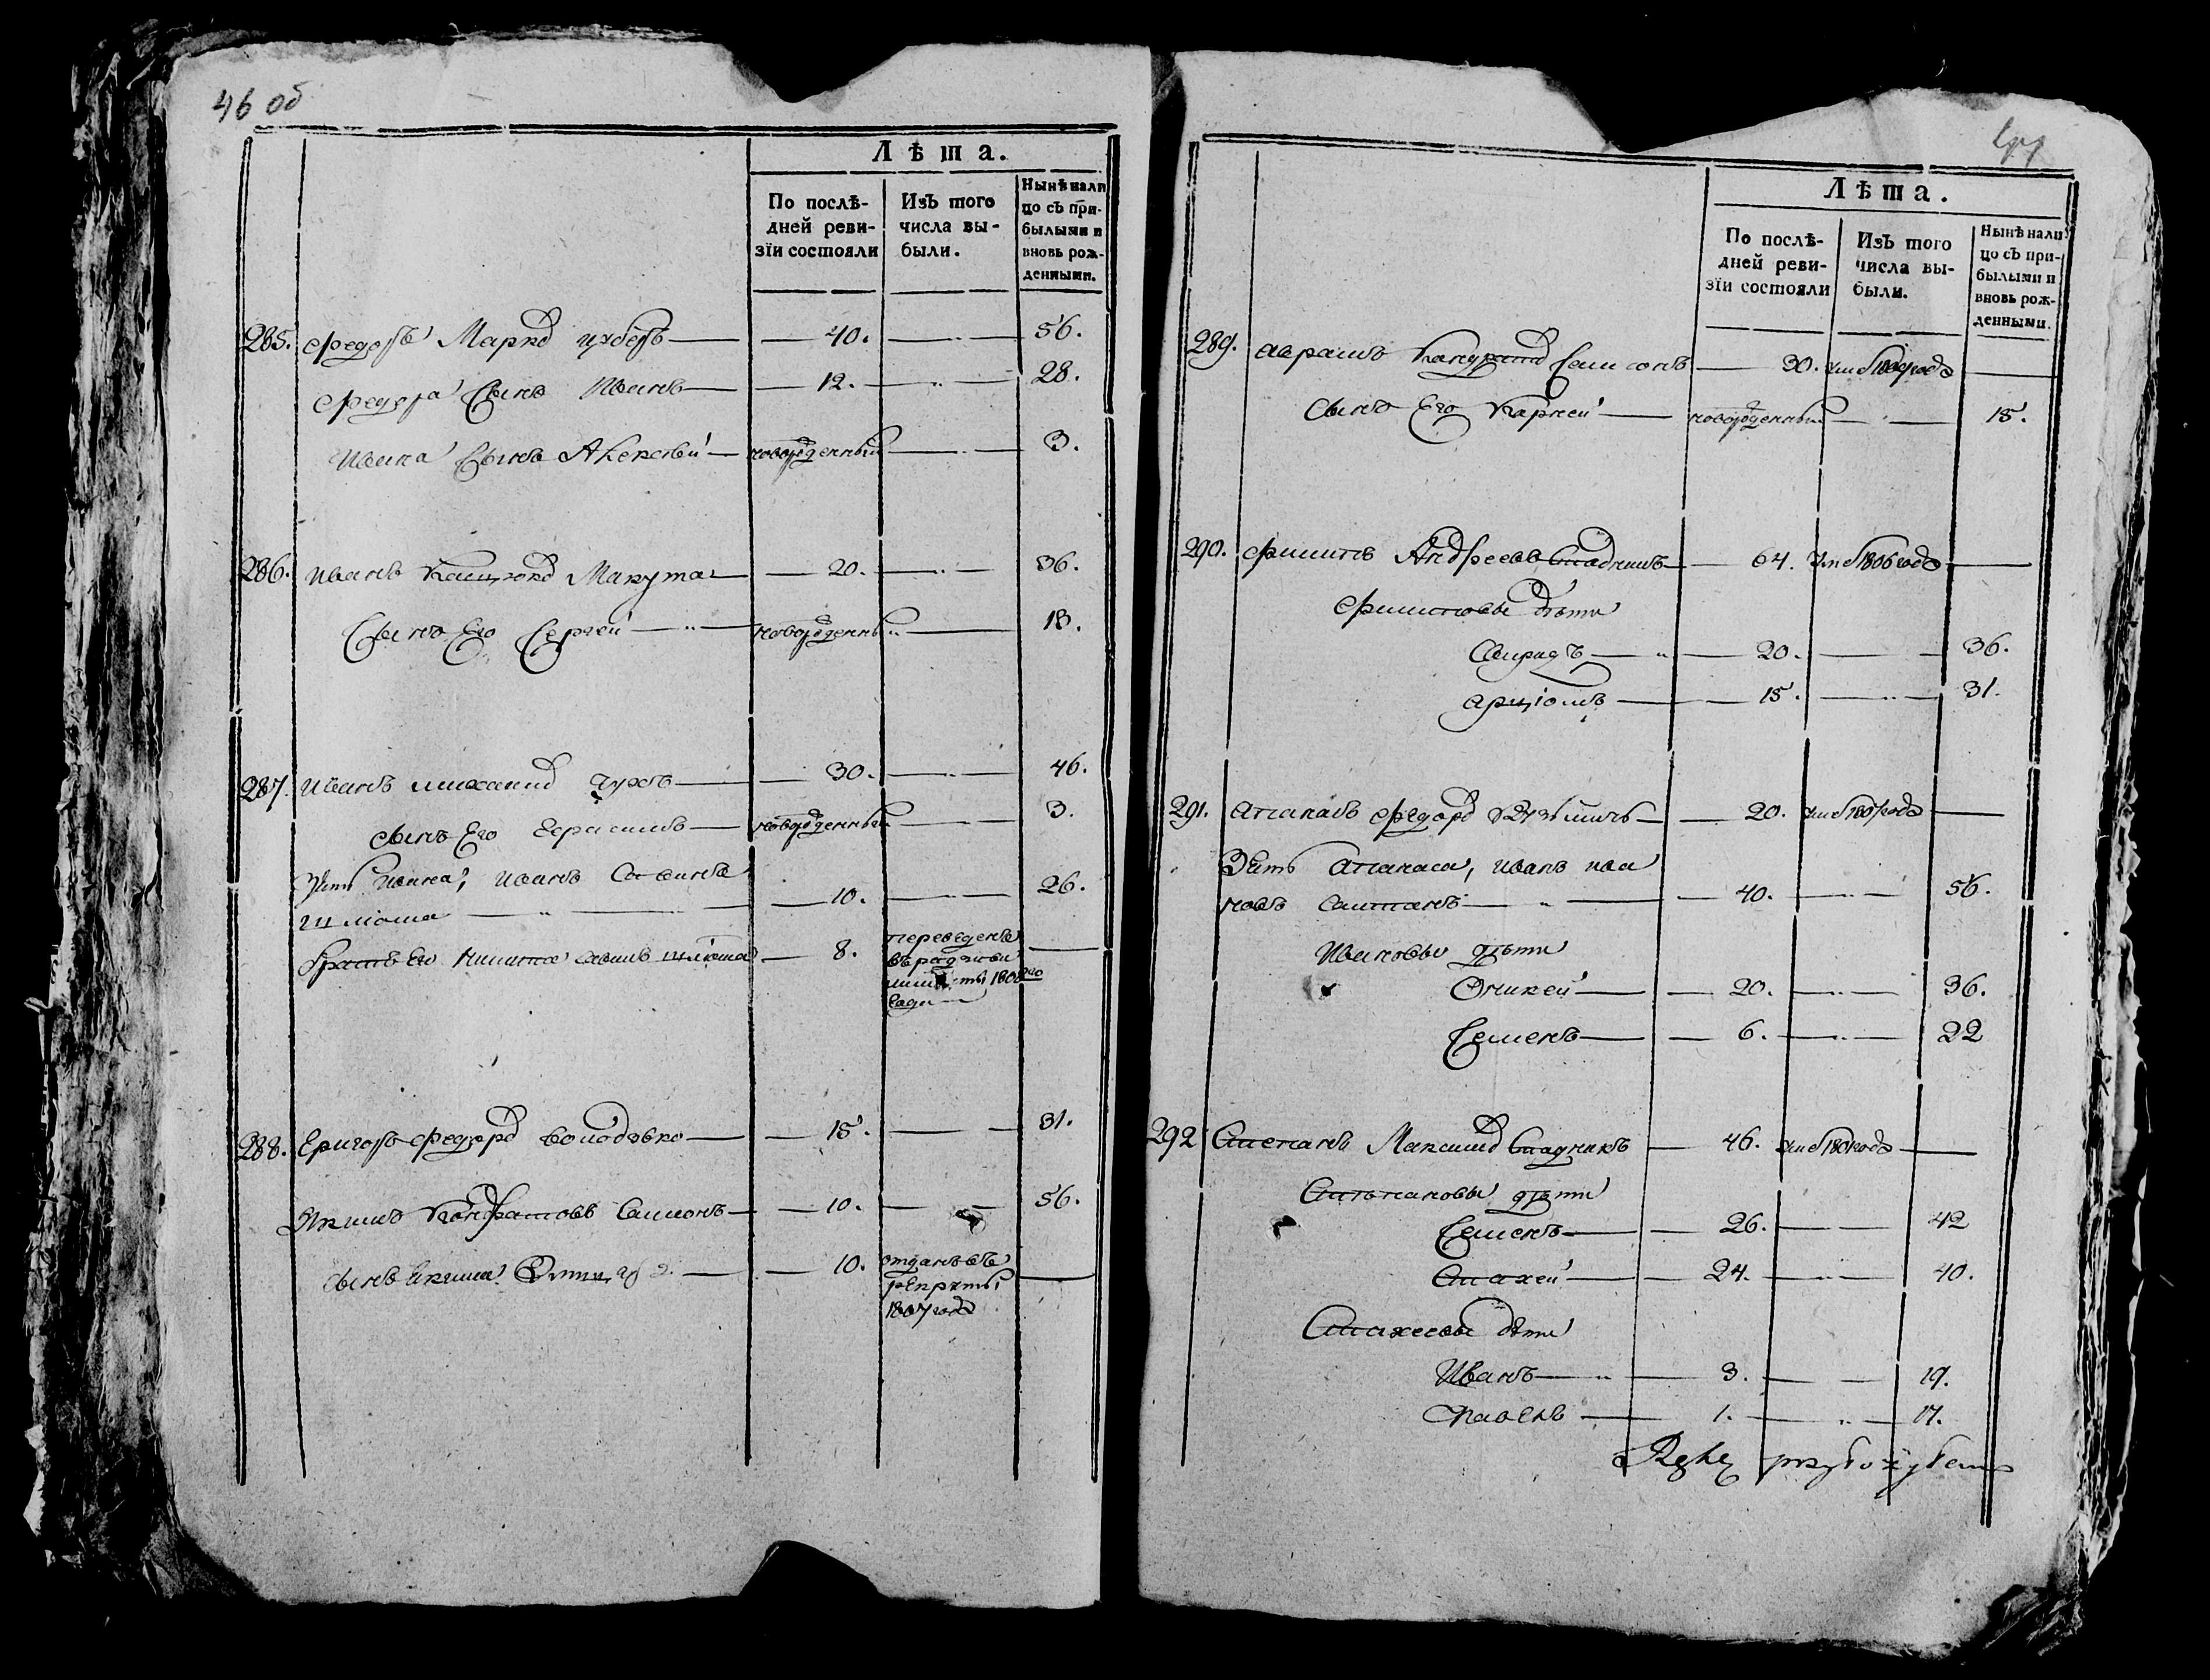 46 об
Лѣта.
По послѣ-
дней реви-
зїи состояли
Изъ того
числа вы-
были.
Нынѣ нали
цо съ при-
былыми и
вновь рож-
денными.
285. Федоръ Марко — 40. — 56.
Федора Сынъ Иванъ — 12. — 28.
Ивана Сынъ Алексѣй — новорожденный — 3.
286. Иванъ Макута — 20. — 36.
Сынъ Его Сергей — новорожденны — 13.
287. Иванъ михайло Чухъ — 30. — 46.
сынъ Его Герасимъ — новорожденный — 3.
Зять Ивана, Иванъ Савинъ
— 10. — 26.
братъ Его Никита — 8. переведенъ
1808го
288. Григоръ Федоро володько — 15. — 31.
Якимъ Кондратовъ Самсонъ — 10. — 56.
сынъ Якима — 10. отданъ въ
рекруты
1807 года
Лѣта.
По послѣ-
дней реви-
зїи состояли
Изъ того
числа вы-
были.
Нынѣ нали
цо съ при-
былыми и
вновь рож-
денными.
289. Аврамъ Самсонъ — 30. —
Сынъ Его Карней — новорожденный — 15.
290. Филипъ Андреевъ Стадникъ — 64. Уме 1806 года —
Филиповы дѣти
Свиридъ — 20. — 36.
Арцiомъ — 15. — 31.
291. Апанасъ Федоро — 20. —
Зять Апанаса, Иванъ ива
новъ — 40. — 56.
Ивановы дѣти
Оникей — 20. — 36.
Семенъ — 6. — 22
292 Степанъ Максимо Стадникъ — 46. —
Степановы дѣти
Семенъ — 26. — 42
Стахей — 24. — 40.
Стахеевы дѣти
Иванъ — 3. — 19.
Павелъ — 1. — 17.
Rękę przyłożyłem